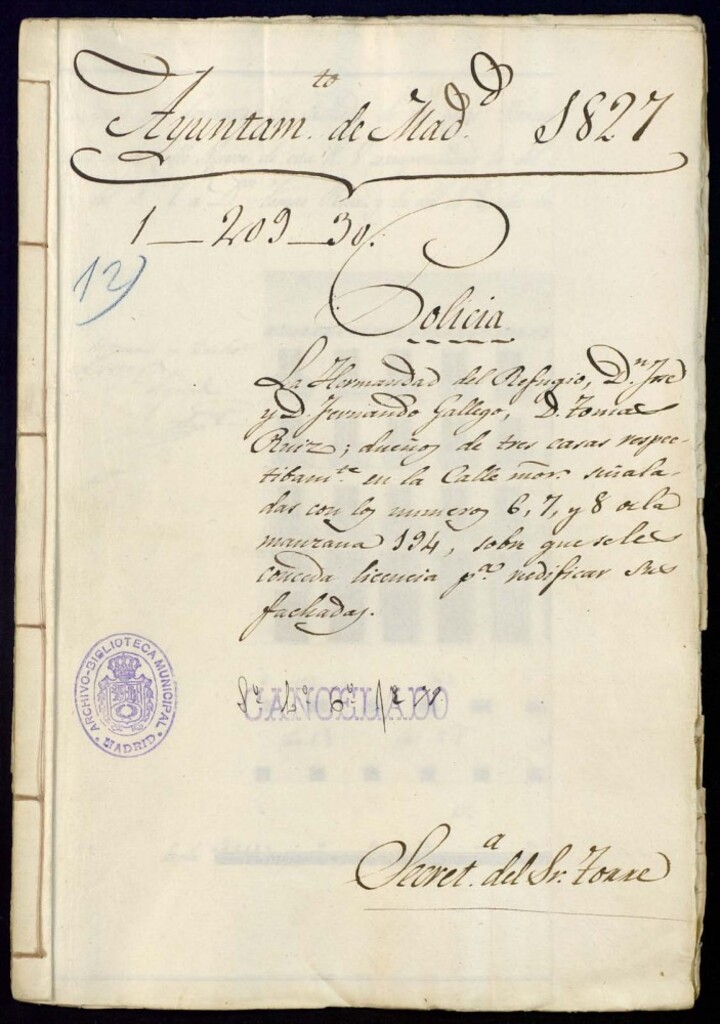 Ayuntam.to de Mad.d 1827
1—209—30.
12)
Policia
La Hermandad del Refugio, D.n Jse
y D. Fernando Gallego, D. Tomas
Ruiz; dueños de tres casas respec-
tibam.te en la Calle mor. señala-
das con los numeros 6, 7, y 8 de la
manzana 194, sobre que se les
conceda licencia p.a redificar sus
fachadas.
CANCELADO
ARCHIVO-BIBLIOTECA MUNICIPAL
MADRID
Secret.a del Sr. Torre